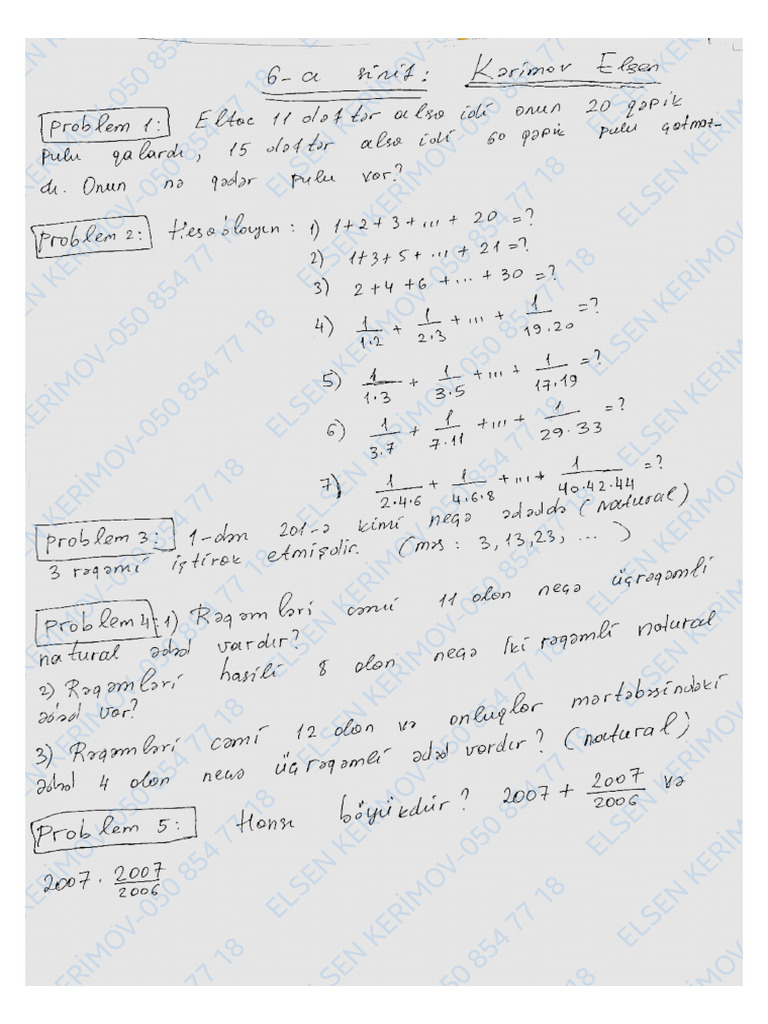 6-a sinif: Kərimov Elşən
Problem 1: Eltac 11 dəftər alsa idi onun 20 qəpik
pulu qalardı, 15 dəftər alsa idi 60 qəpik pulu çatmaz-
dı. Onun nə qədər pulu var?
Problem 2: Hesablayın: 1) 1+2+3+...+ 20 =?
2) 1+3+5+...+ 21=?
3) 2+4+6+...+30=?
4) 1/1·2 + 1/2·3 +...+ 1/19·20 =?
5) 1/1·3 + 1/3·5 +...+ 1/17·19 =?
6) 1/3·7 + 1/7·11 +...+ 1/29·33 =?
7) 1/2·4·6 + 1/4·6·8 +...+ 1/40·42·44 =?
Problem 3: 1-dən 201-ə kimi neçə ədəddə (natural)
3 rəqəmi iştirak etmişdir. (məs: 3, 13, 23, ...)
Problem 4: 1) Rəqəmləri cəmi 11 olan neçə üçrəqəmli
natural ədəd vardır?
2) Rəqəmləri hasili 8 olan neçə iki rəqəmli natural
ədəd var?
3) Rəqəmləri cəmi 12 olan və onluqlar mərtəbəsindəki
ədəd 4 olan neçə üçrəqəmli ədəd vardır? (natural)
Problem 5: Hansı böyükdür? 2007 + 2007/2006 və
2007 · 2007/2006
ELSEN KERİMOV-050 854 77 18